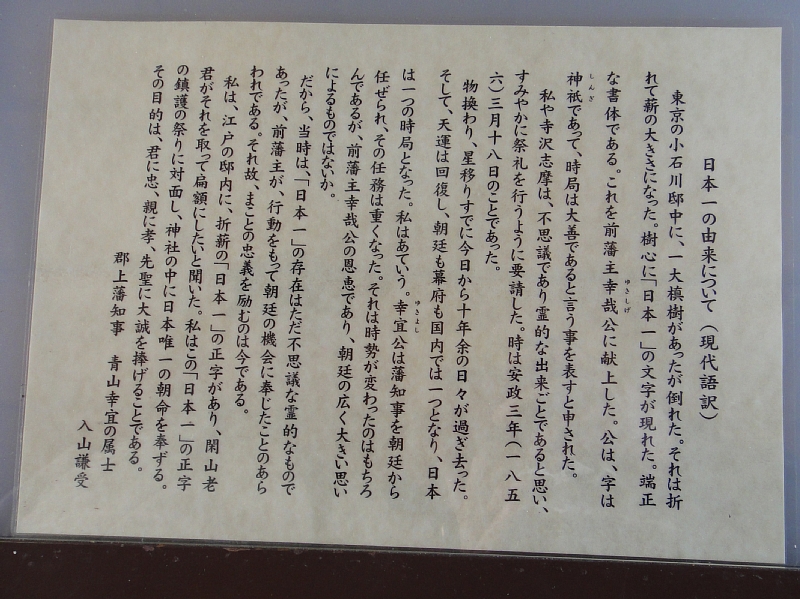 日本一の由来について（現代語訳）
東京の小石川邸中に、一大槙樹があったが倒れた。それは折
れて薪の大きさになった。樹心に「日本一」の文字が現れた。端正
な書体である。これを前藩主幸哉公に献上した。公は、字は
ゆきしげ
神祇であって、時局は大善であると言う事を表すと申された。
しんぎ
私や寺沢志摩は、不思議であり霊的な出来ごとであると思い、
すみやかに祭礼を行うように要請した。時は安政三年（一八五
六）三月十八日のことであった。
物換わり、星移りすでに今日から十年余の日々が過ぎ去った。
そして、天運は回復し、朝廷も幕府も国内では一つとなり、日本
は一つの時局となった。私はあていう。幸宜公は藩知事を朝廷から
ゆきよし
任ぜられ、その任務は重くなった。それは時勢が変わったのはもちろ
んであるが、前藩主幸哉公の恩恵であり、朝廷の広く大きい思い
によるものではないか。
だから、当時は、「日本一」の存在はただ不思議な霊的なもので
あったが、前藩主が、行動をもって朝廷の機会に奉じたことのあら
われである。それ故、まことの忠義を励むのは今である。
私は、江戸の邸内に、折薪の「日本一」の正字があり、閑山老
君がそれを取って扁額にしたいと聞いた。私はこの「日本一」の正字
の鎮護の祭りに対面し、神社の中に日本唯一の朝命を奉ずる。
その目的は、君に忠、親に孝、先聖に大誠を捧げることである。
郡上藩知事　青山幸宜の属士
入山謙受